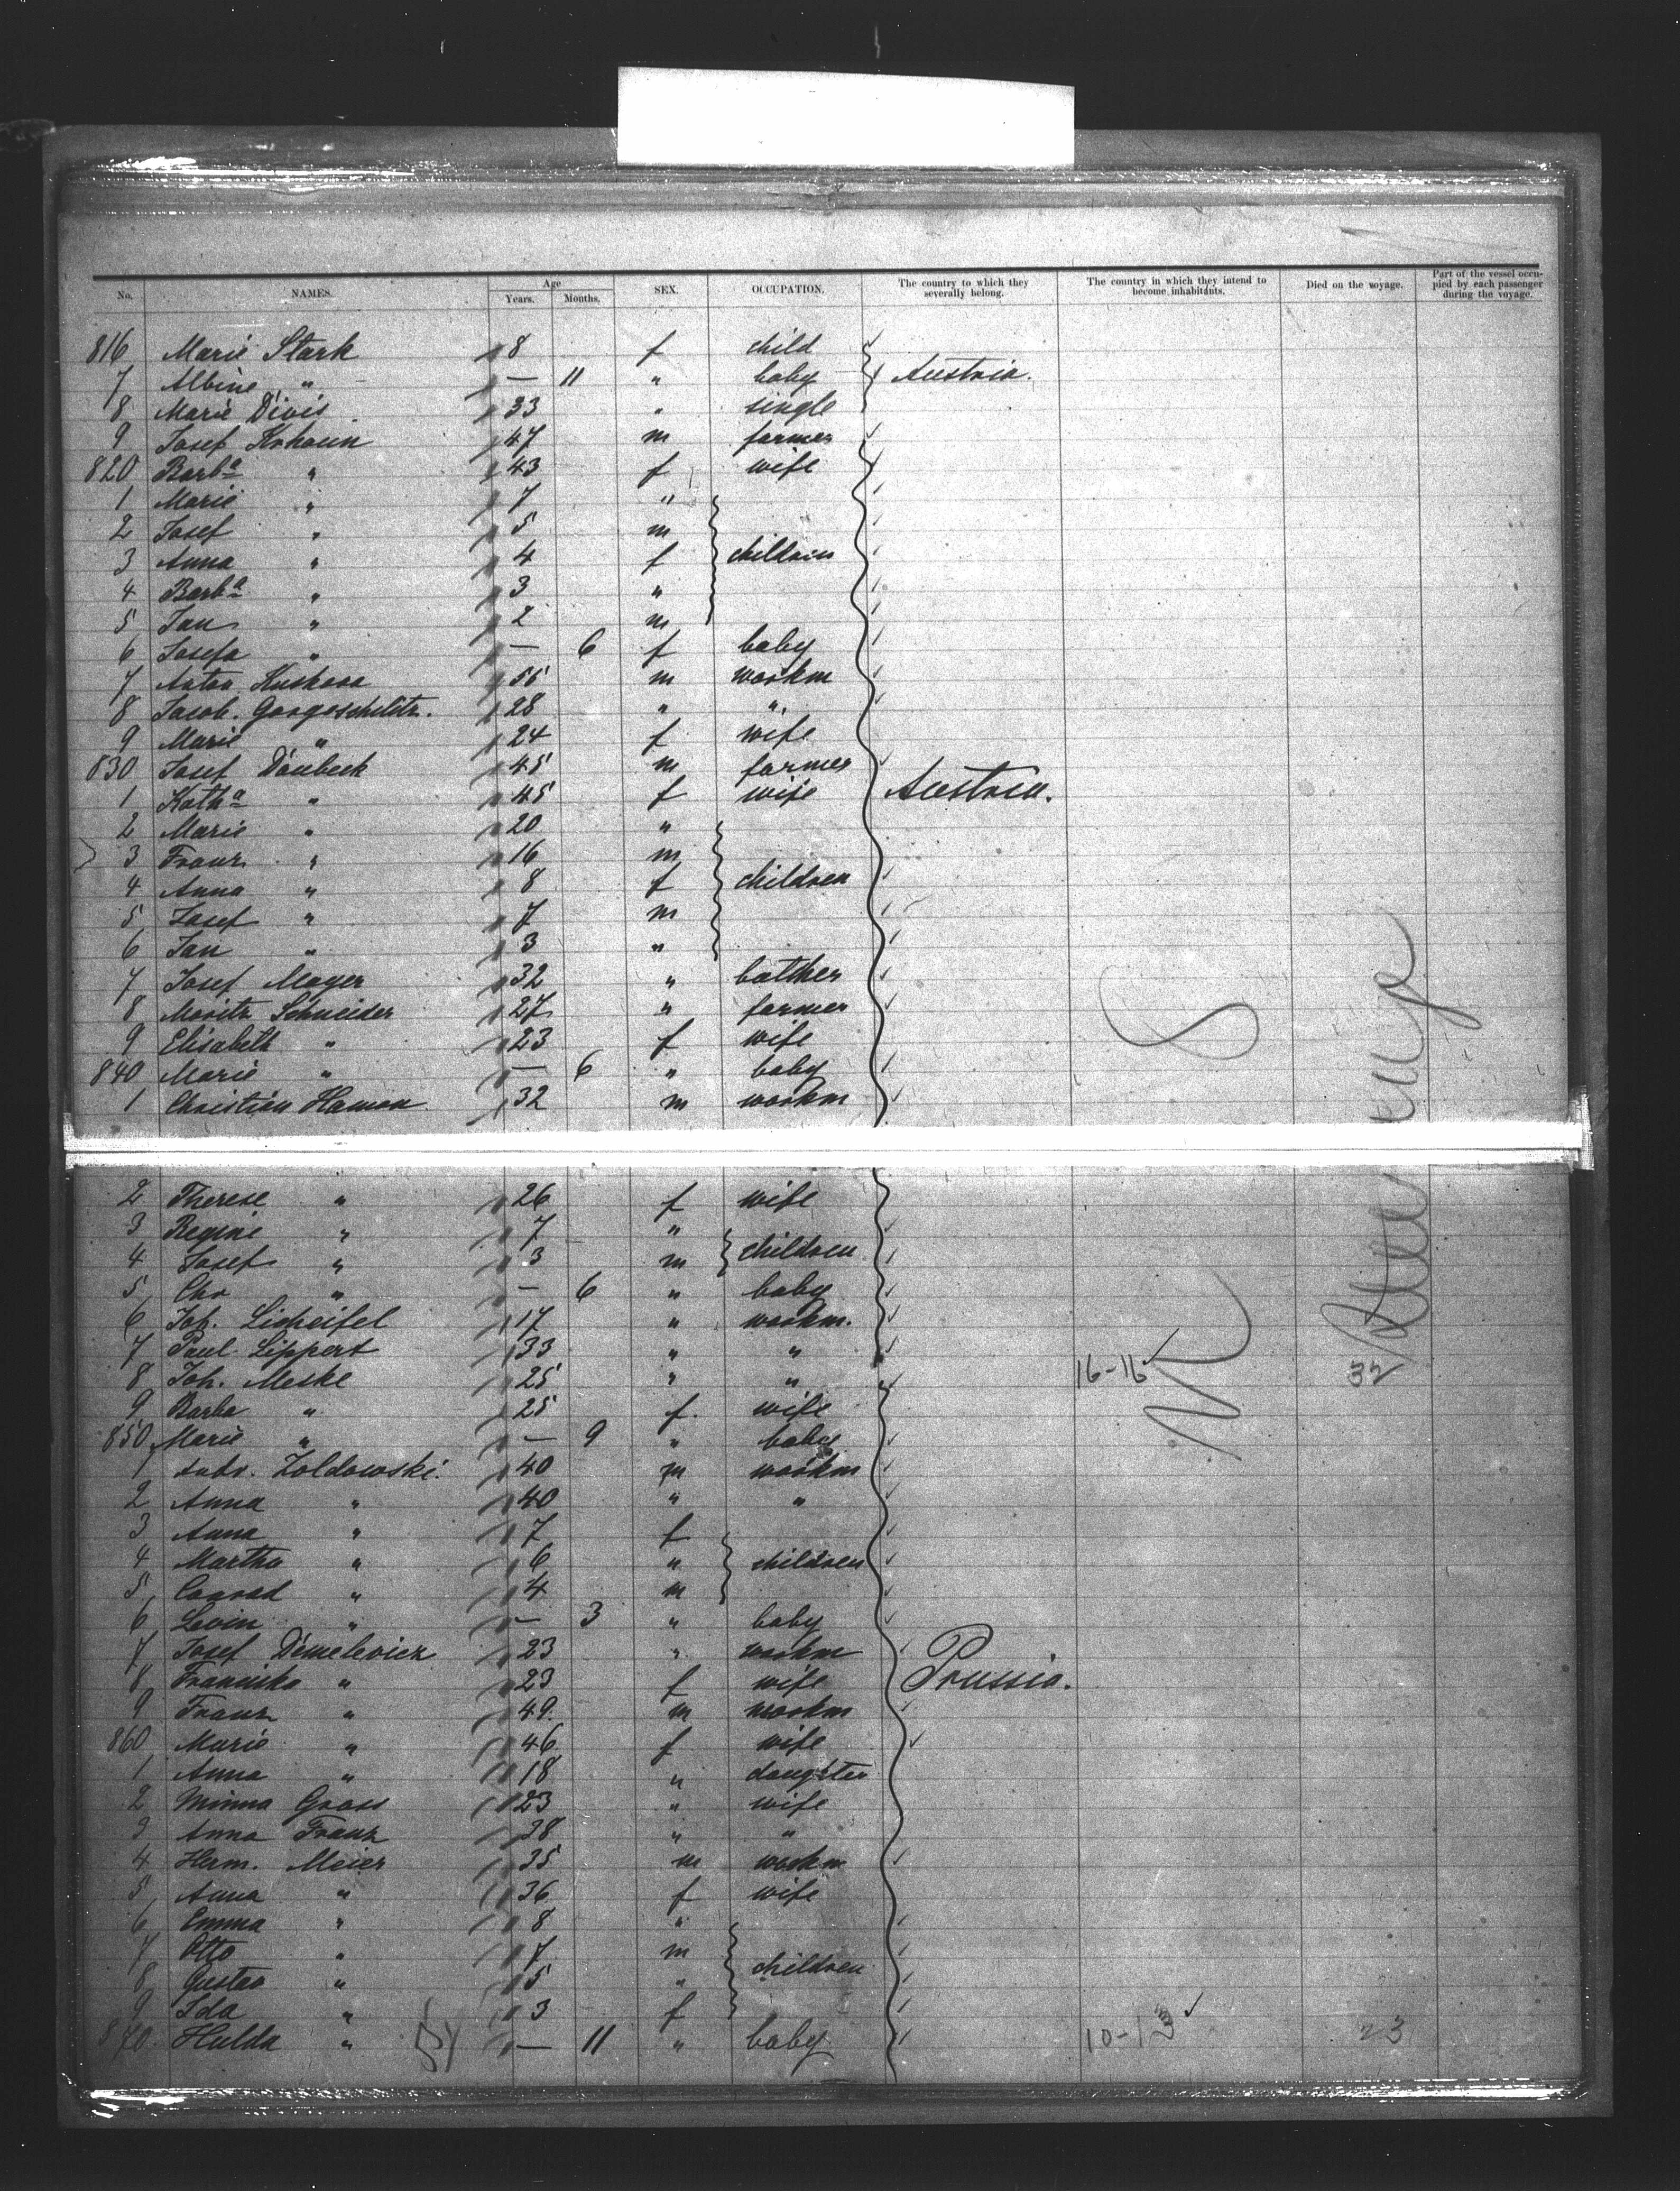 No. NAMES. Age Years. Months. SEX. OCCUPATION. The country to which they severally belong. The country in which they intend to become inhabitants. Died on the voyage. Part of the vessel occupied by each passenger during the voyage.
816 Marie Stark 8 f child
7 Albine " — 11 " baby Austria.
8 Marie Divis 33 " single
9 Josef Kohoun 47 m farmer
820 Barba " 43 f wife
1 Marie " 7 "
2 Josef " 5 m
3 Anna " 4 f children
4 Barba " 3 "
5 Jan " 2 m
6 Josefa " — 6 f baby
7 Anton 55 m workm
8 Jacob. 28 " "
9 Marie " 24 f wife
830 Josef Doubeck 45 m farmer
1 Katha " 45 f wife Austria.
2 Marie " 20 "
3 Franz " 16 m
4 Anna " 8 f children
5 Josef " 7 m
6 Jan " 3 "
7 Josef Mayer 32 " butcher
8 Moritz Schneider 27 " farmer
9 Elisabeth " 23 f wife
840 Marie " — 6 " baby
1 Christian Hamon 32 m workm
2 Therese " 26 f wife
3 Regine " 7 "
4 Josef " 3 m children
5 Chr " — 6 " baby
6 Joh. 17 " workm.
7 Paul Lippert 33 " "
8 Joh. Meske 25 " " 16-16 32
9 Barba " 25 f. wife
850 Marie " — 9 " baby
1 Andr. Zoldowski. 40 m workm
2 Anna " 40 " "
3 Anna " 7 f
4 Martha " 6 " children
5 Conrad " 4 m
6 Levin " — 3 " baby
7 Josef Demelevicz 23 " workm
8 Franciska " 23 f wife Prussia.
9 Franz " 49. m workm
860 Marie " 46 f wife
1 Anna " 18 " daughter
2 Minna Gross 23 " wife
3 Anna Franz 38 " "
4 Herm. Meier 35 m workm
5 Anna " 36 f wife
6 Emma " 8 "
7 Otto " 7 m
8 Gustav " 5 " children
9 Ida " 3 f
870. Hulda " — 11 " baby 10-13 23